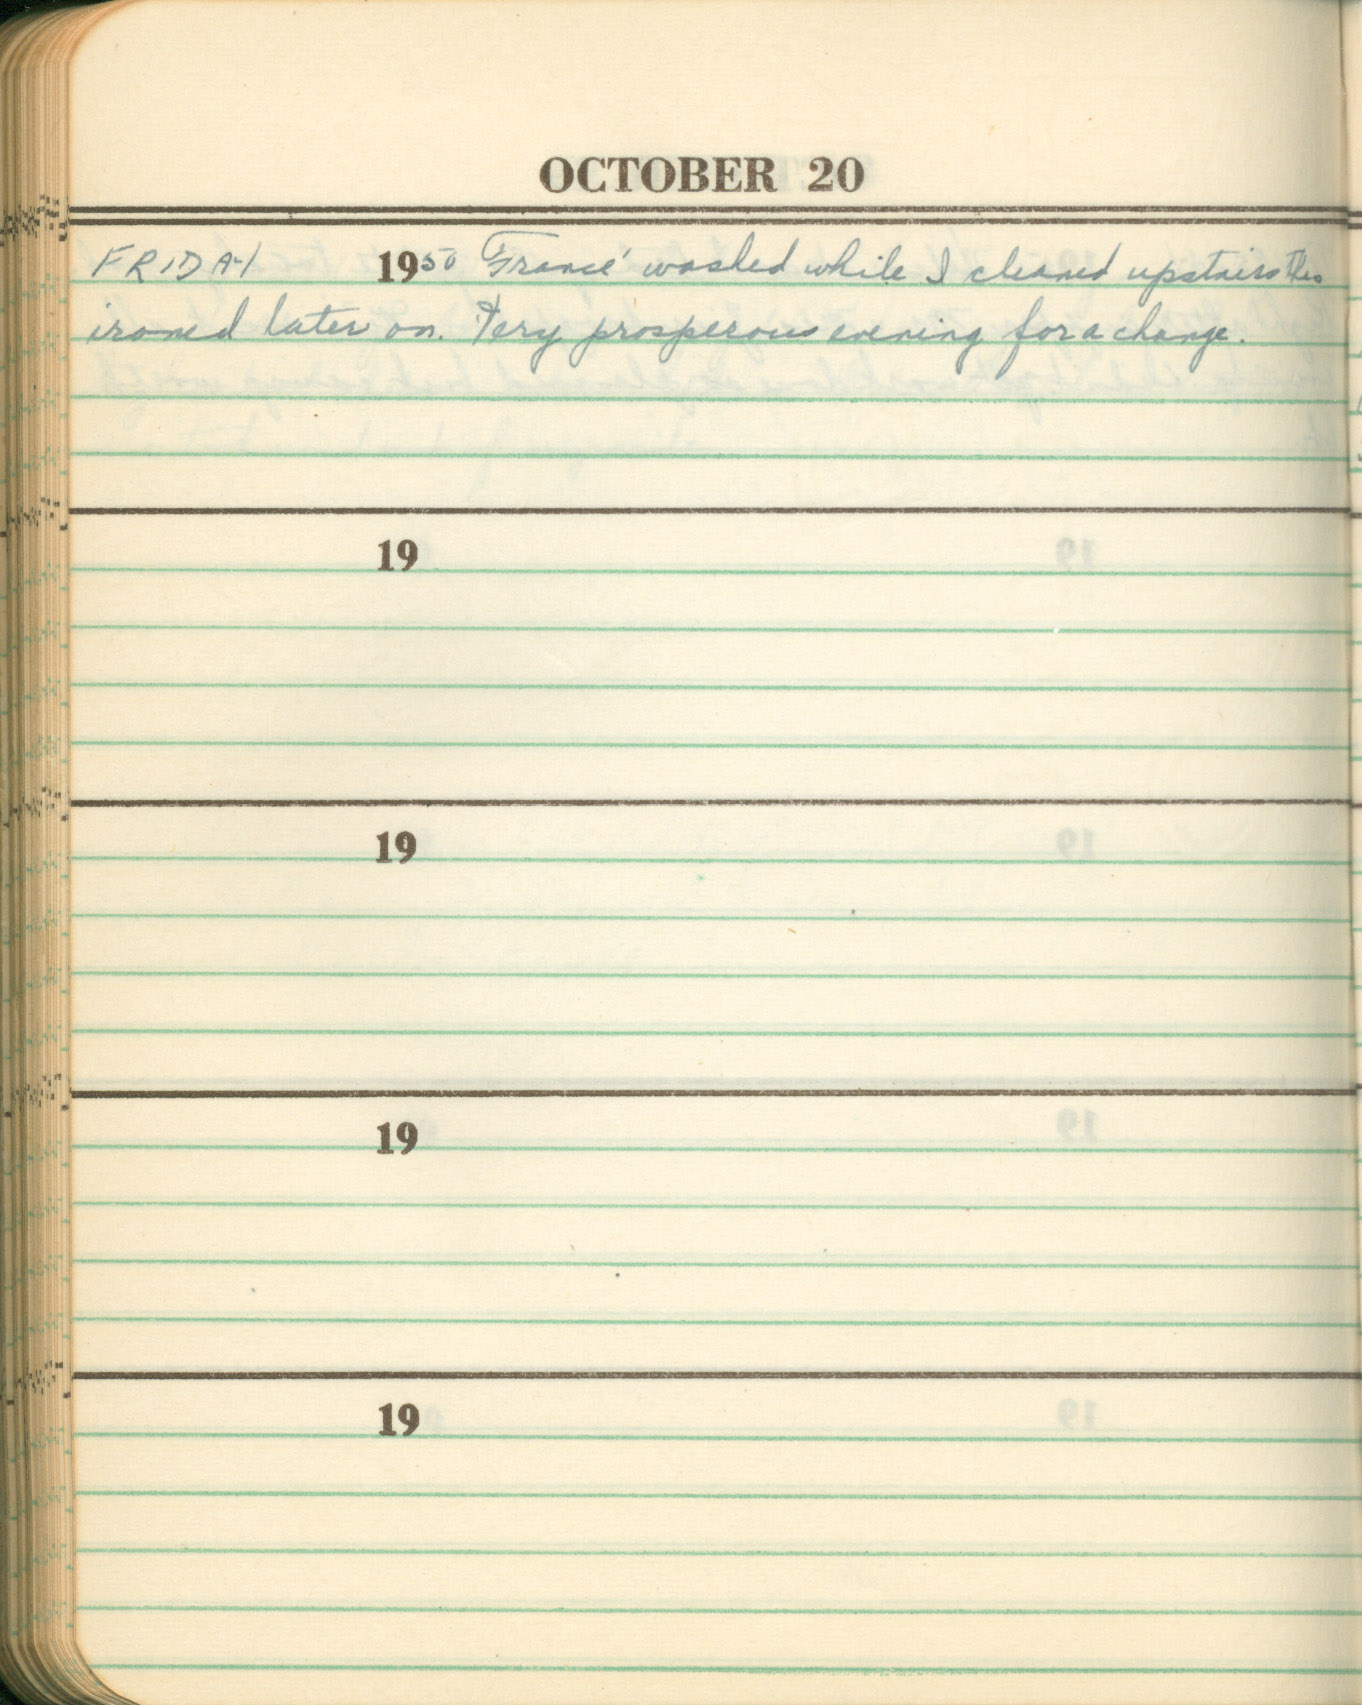 OCTOBER 20
FRIDAY 1950 Francé washed while I cleaned upstairs then
ironed later on. Very prosperous evening for a change.
19
19
19
19